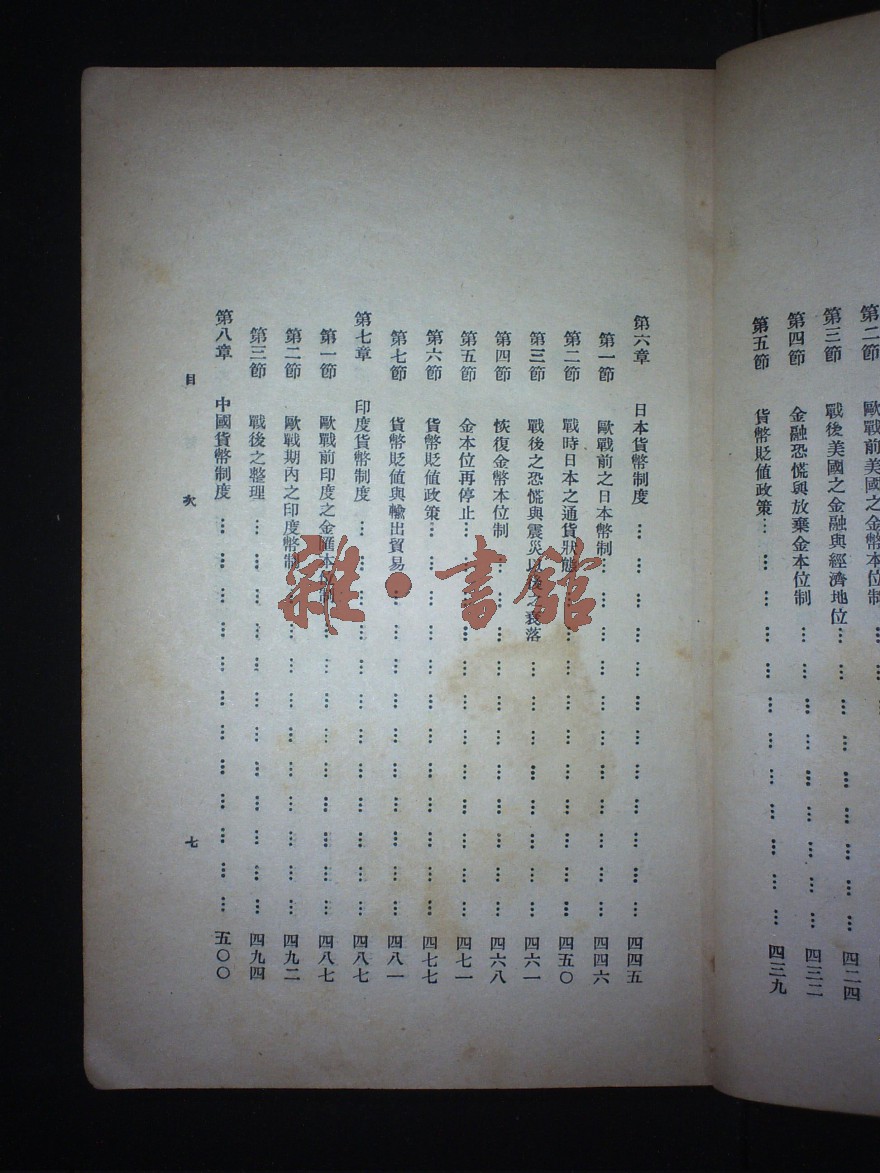 第二節　歐戰前美國之金幣本位制
第三節　戰後美國之金融與經濟地位…………………………四二四
第四節　金融恐慌與放棄金本位制…………………………四三二
第五節　貨幣貶值政策…………………………四三九
第六章　日本貨幣制度…………………………四四五
第一節　歐戰前之日本幣制…………………………四四六
第二節　戰時日本之通貨狀態…………………………四五〇
第三節　戰後之恐慌與震災以後之衰落…………………………四六一
第四節　恢復金幣本位制…………………………四六八
第五節　金本位再停止…………………………四七一
第六節　貨幣貶值政策…………………………四七七
第七節　貨幣貶值與輸出貿易…………………………四八一
第七章　印度貨幣制度…………………………四八七
第一節　歐戰前印度之金匯本位制…………………………四八七
第二節　歐戰期內之印度幣制…………………………四九二
第三節　戰後之整理…………………………四九四
第八章　中國貨幣制度…………………………五〇〇
目次　七
雜·書館